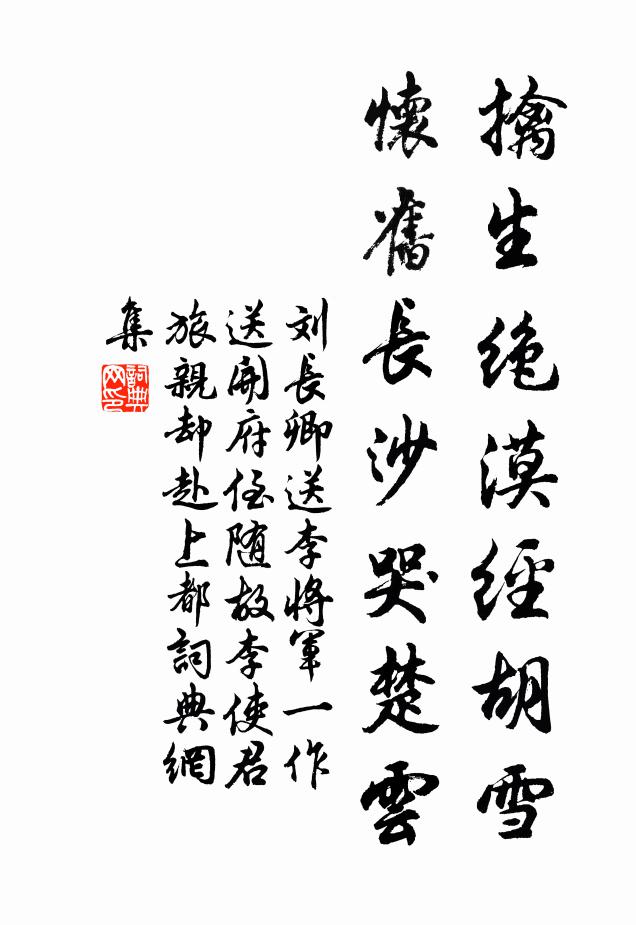 擒生絶漠經胡雪
懷舊長沙哭楚雲
刘長卿送李將軍一作
送開府侄随故李使君
旅親却赴上都詞典網
集
詞典網印